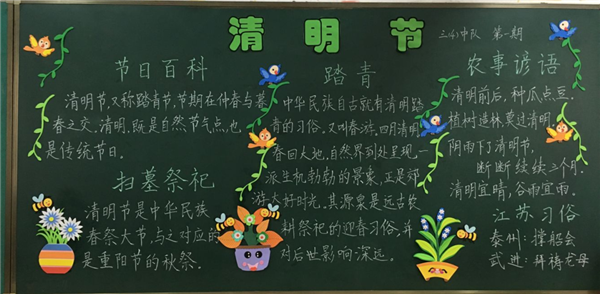 清明节
三(4)中队 第一期
节日百科
清明节,又称踏青节,节期在仲春与暮
春之交。清明,既是自然节气点,也
是传统节日。
扫墓祭祀
清明节是中华民族
春祭大节,与之对应的
是重阳节的秋祭。
踏青
中华民族自古就有清明踏
青的习俗,又叫春游,四月清明,
春回大地,自然界到处呈现一
派生机勃勃的景象,正是郊
游大好时光。其源泉是远古农
耕祭祀的迎春习俗,并
对后世影响深远。
农事谚语
清明前后,种瓜点豆。
植树造林,莫过清明。
阴雨下了清明节,
断断续续三个月。
清明宜晴,谷雨宜雨。
江苏习俗
泰州:撑船会
武进:拜祷龙母